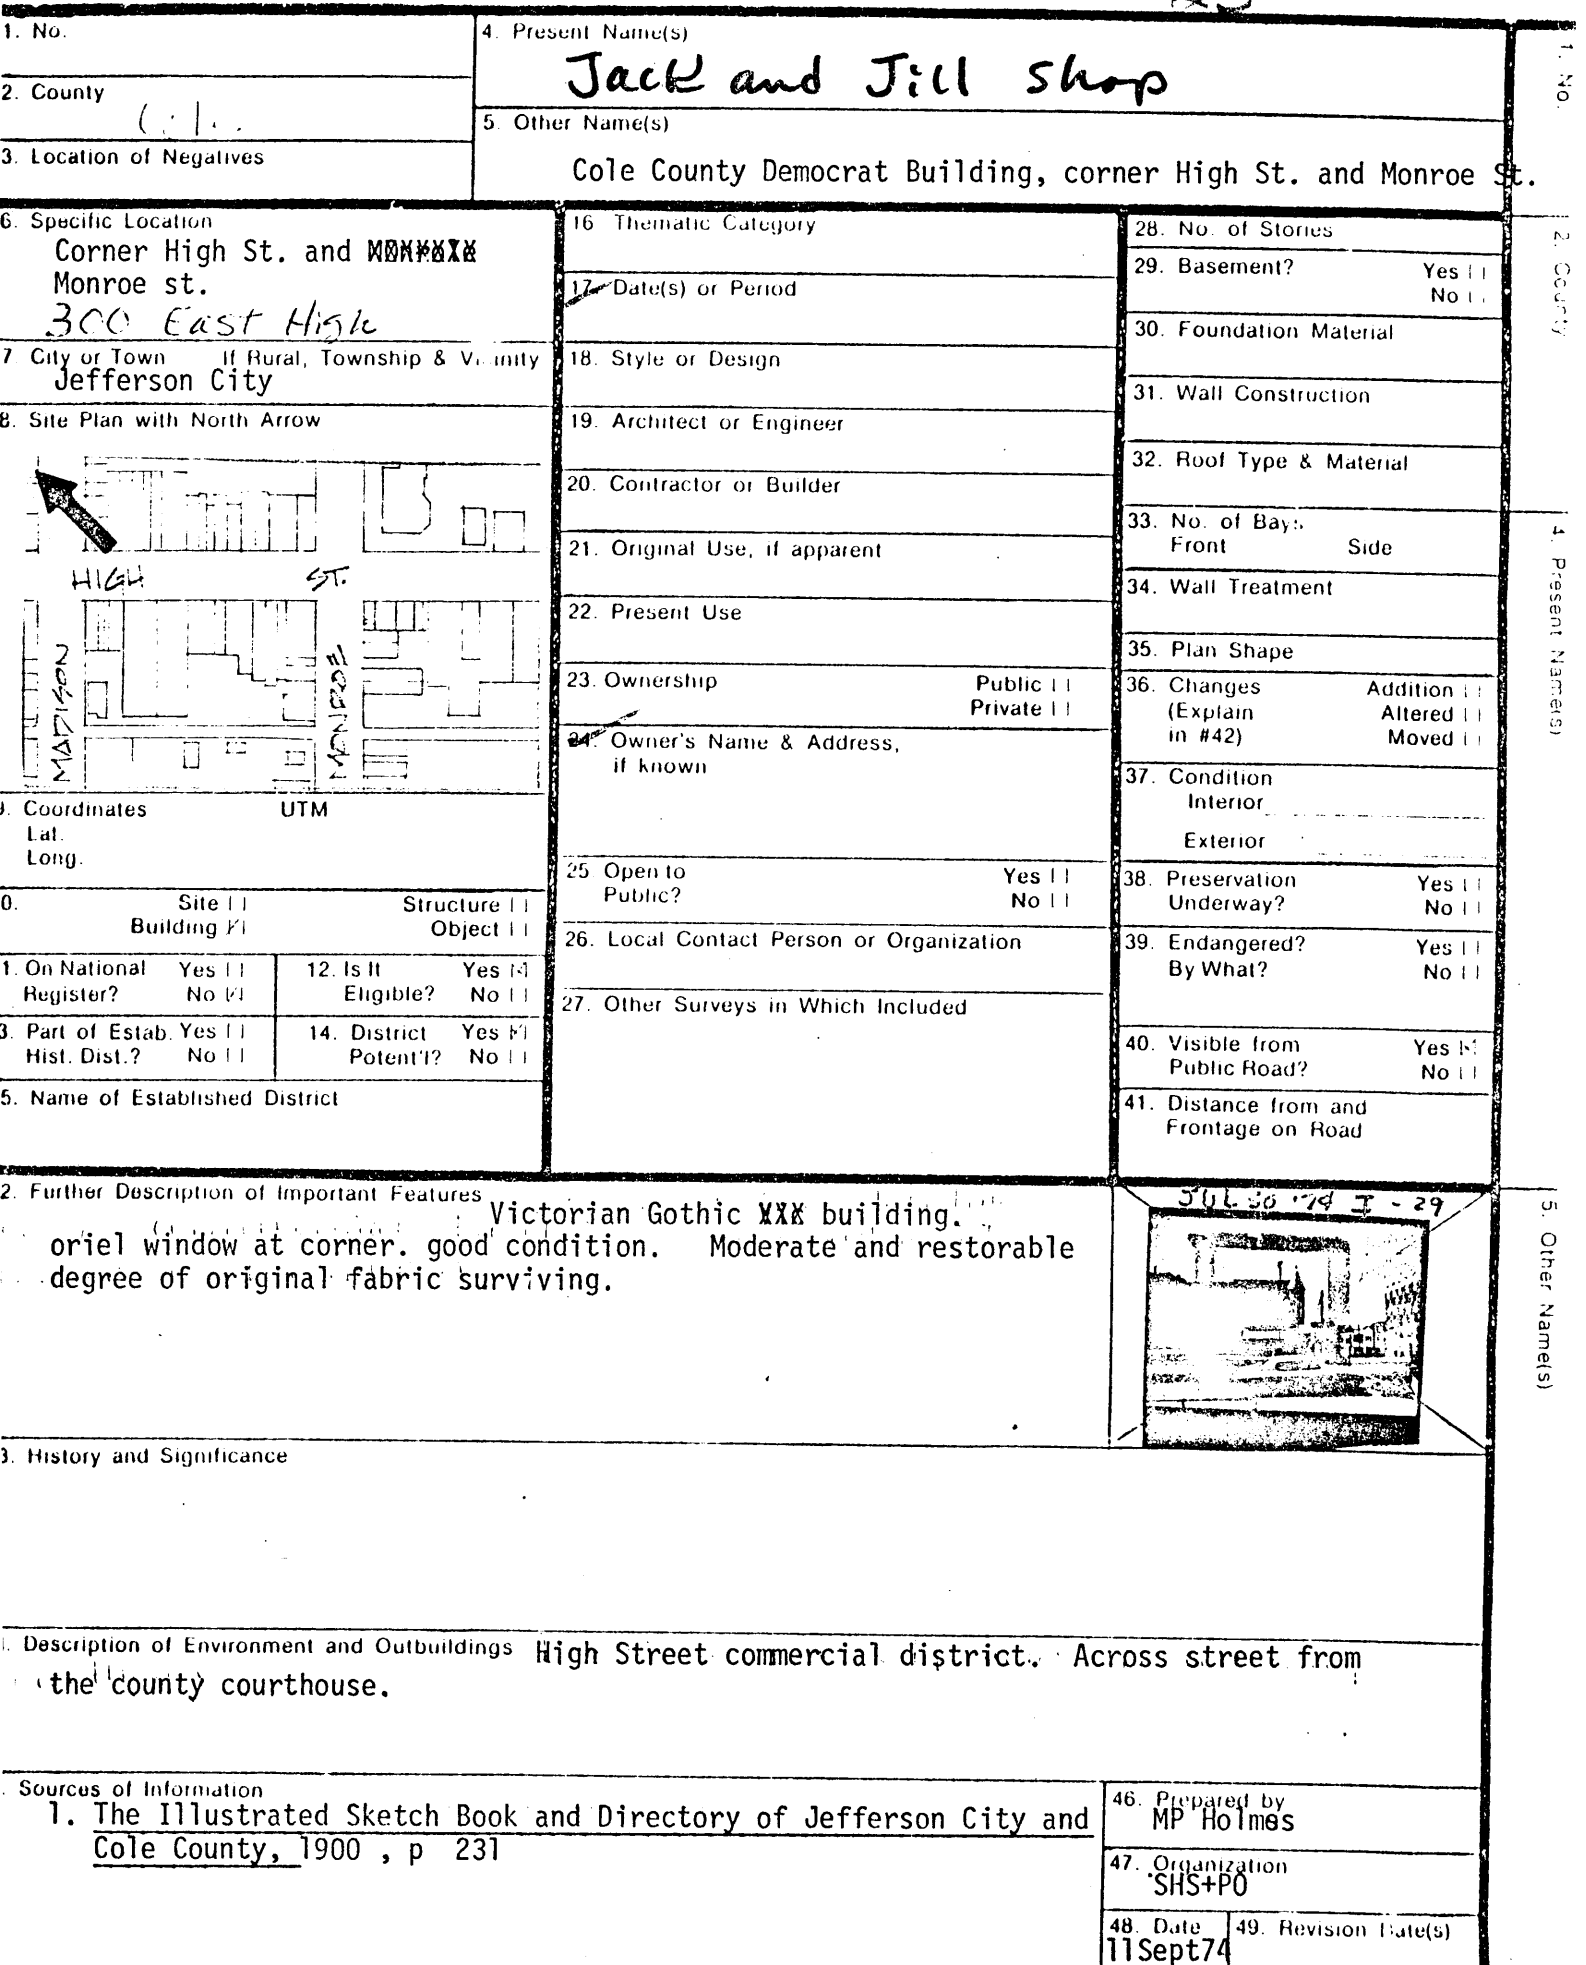 1. No.
4. Present Name(s)
Jack and Jill Shop
2. County
5. Other Name(s)
3. Location of Negatives
Cole County Democrat Building, corner High St. and Monroe St.
6. Specific Location
Corner High St. and
Monroe st.
300 East High
7. City or Town If Rural, Township & Vicinity
Jefferson City
8. Site Plan with North Arrow
HIGH ST.
MADISON
MONROE
9. Coordinates UTM
Lat.
Long.
0. Site Structure
Building Object
1. On National Yes
Register? No
12. Is It Yes
Eligible? No
3. Part of Estab. Yes
Hist. Dist.? No
14. District Yes
Potent'l? No
5. Name of Established District
16 Thematic Category
17. Date(s) or Period
18. Style or Design
19. Architect or Engineer
20. Contractor or Builder
21. Original Use, if apparent
22. Present Use
23. Ownership Public
Private
24. Owner's Name & Address,
if known
25 Open to Yes
Public? No
26. Local Contact Person or Organization
27. Other Surveys in Which Included
28. No. of Stories
29. Basement? Yes
No
30. Foundation Material
31. Wall Construction
32. Roof Type & Material
33. No. of Bays
Front Side
34. Wall Treatment
35. Plan Shape
36. Changes Addition
(Explain Altered
in #42) Moved
37. Condition
Interior
Exterior
38. Preservation Yes
Underway? No
39. Endangered? Yes
By What? No
40. Visible from Yes
Public Road? No
41. Distance from and
Frontage on Road
2. Further Description of Important Features Victorian Gothic XXX building.
oriel window at corner. good condition. Moderate and restorable
degree of original fabric surviving.
JUL 30 '74 I - 29
3. History and Significance
. Description of Environment and Outbuildings High Street commercial district. Across street from
the county courthouse.
. Sources of Information
1. The Illustrated Sketch Book and Directory of Jefferson City and
Cole County, 1900 , p 231
46. Prepared by
MP Holmes
47. Organization
SHS+PO
48. Date
11Sept74
49. Revision Date(s)
1. No.
2. County
4. Present Name(s)
5. Other Name(s)